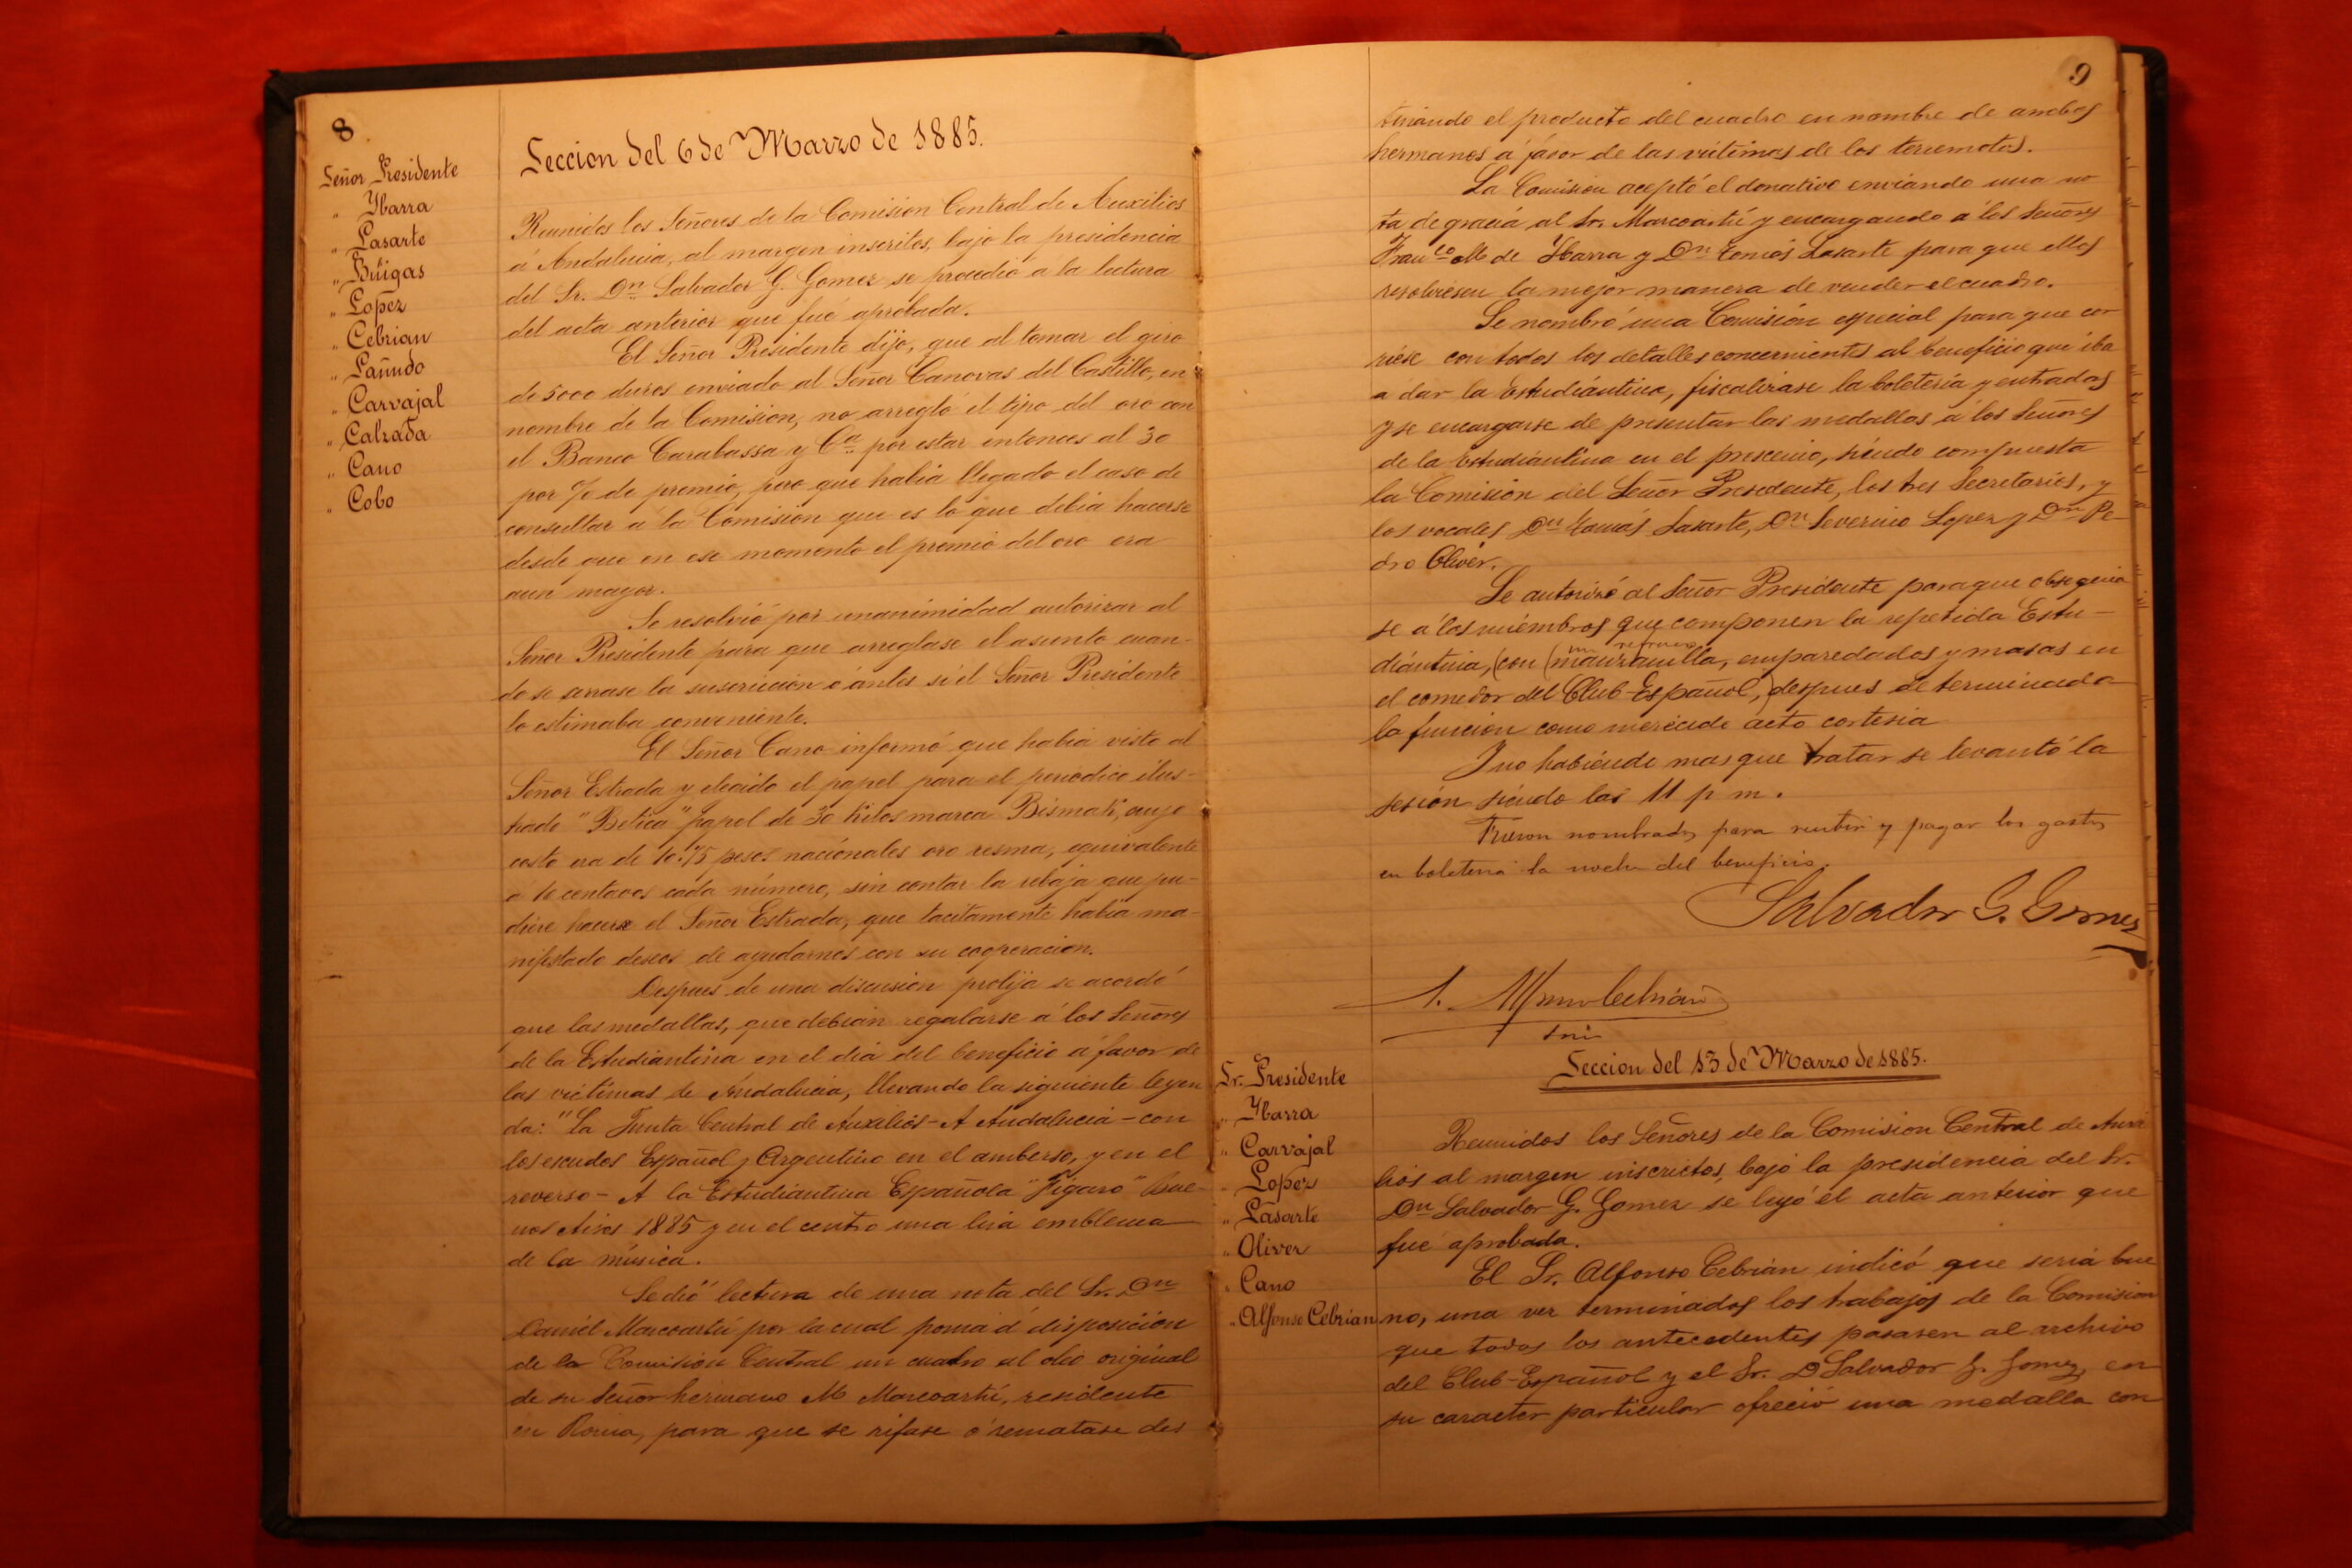 8
Señor Presidente
" Ybarra
" Lasarte
" Búigas
" Lopez
" Cebrian
" Pañudo
" Carvajal
" Calzada
" Cano
" Cobo
Seccion del 6 de Marzo de 1885.
Reunidos los Señores de la Comision Central de Auxilios
á Andalucia, al margen inscritos, bajo la presidencia
del Sr. Dn Salvador G. Gomez se procedió á la lectura
del acta anterior que fué aprobada.
El Señor Presidente dijo, que al tomar el giro
de 5000 duros enviado al Señor Canovas del Castillo, en
nombre de la Comision, no arregló el tipo del oro con
el Banco Carabassa y Ca. por estar entonces al 30
por % de premio, pero que habia llegado el caso de
consultar a la Comision que es lo que debia hacerse
desde que en ese momento el premio del oro era
aun mayor.
Se resolvió por unanimidad autorizar al
Señor Presidente para que arreglase el asunto cuan-
do se cerrase la suscricion ó ántes si el Señor Presidente
lo estimaba conveniente.
El Señor Cano informó que habia visto al
Señor Estrada y elegido el papel para el periódico ilus-
trado "Betica" papel de 30 kilos marca Bismak, cuyo
costo era de 10.75 pesos nacionales oro resma, equivalente
á 10 centavos cada número, sin contar la rebaja que pu-
diere hacerse el Señor Estrada, que tacitamente habia ma-
nifestado deseos de ayudarnos con su cooperacion.
Despues de una discusion prolija se acordó
que las medallas, que debian regalarse á los Señores
de la Estudiantina en el dia del beneficio á favor de
las victimas de Andalucia, llevando la siguiente leyen
da: "La Junta Central de Auxilios - A Andalucia - con
los escudos Español y Argentino en el amberso, y en el
reverso - A la Estudiantina Española "Figaro" Bue-
nos Aires 1885 y en el centro una lira emblema
de la música.
Se dió lectura de una nota del Sr. Dn
Daniel Marcoartú por la cual ponia á disposicion
de la Comision Central un cuadro al oleo original
de su Señor hermano M Marcoartú, residente
en Roma, para que se rifase ó rematase des
9
tinando el producto del cuadro en nombre de ambos
hermanos á favor de las victimas de los terremotos.
La Comision aceptó el donativo enviando una no
ta de gracia al Sr. Marcoartú y encargando á los Señores
Franco M de Ybarra y Dn Tomás Lasarte para que ellos
resolviesen la mejor manera de vender el cuadro.
Se nombró una Comisión especial para que cor
riese con todos los detalles concernientes al beneficio que iba
a dar la Estudiántina, fiscalizase la boleteria y entradas
y se encargarse de presentar las medallas á los Señores
de la Estudiantina en el proscenio, siendo compuesta
la Comisión del Señor Presedente, los tres Secretarios, y
los vocales Dn Tomás Lasarte, Dn Severino Lopez y Dn Pe-
dro Oliver.
Se autorizó al Señor Presidente para que obsequia
se á los miembros que componen la repetida Estu-
diántina, (con (manzanilla, emparedados y masas en
el comedor del Club-Español,) despues de terminada
la funcion como merecido acto cortesia
Y no habiendo mas que tratar se levantó la
sesión siendo las 11 p m.
Fueron nombrados para recibir y pagar los gastos
en boleteria la noche del beneficio.
Salvador G. Gomez
Seccion del 13 de Marzo de 1885.
Sr. Presidente
" Ybarra
" Carvajal
" Lopez
" Lasarte
" Oliver
" Cano
" Alfonso Cebrian
Reunidos los Señores de la Comision Central de Auxi
lios al margen inscrictos, bajo la presidencia del Sr.
Dn Salvador G. Gomez se leyó el acta anterior que
fué aprobada.
El Sr. Alfonso Cebrian indicó que seria bue
no, una vez terminados los trabajos de la Comision
que todos los antecedentes pasasen al archivo
del Club-Español y el Sr. D Salvador G. Gomez, en
su caracter particular ofreció una medalla con